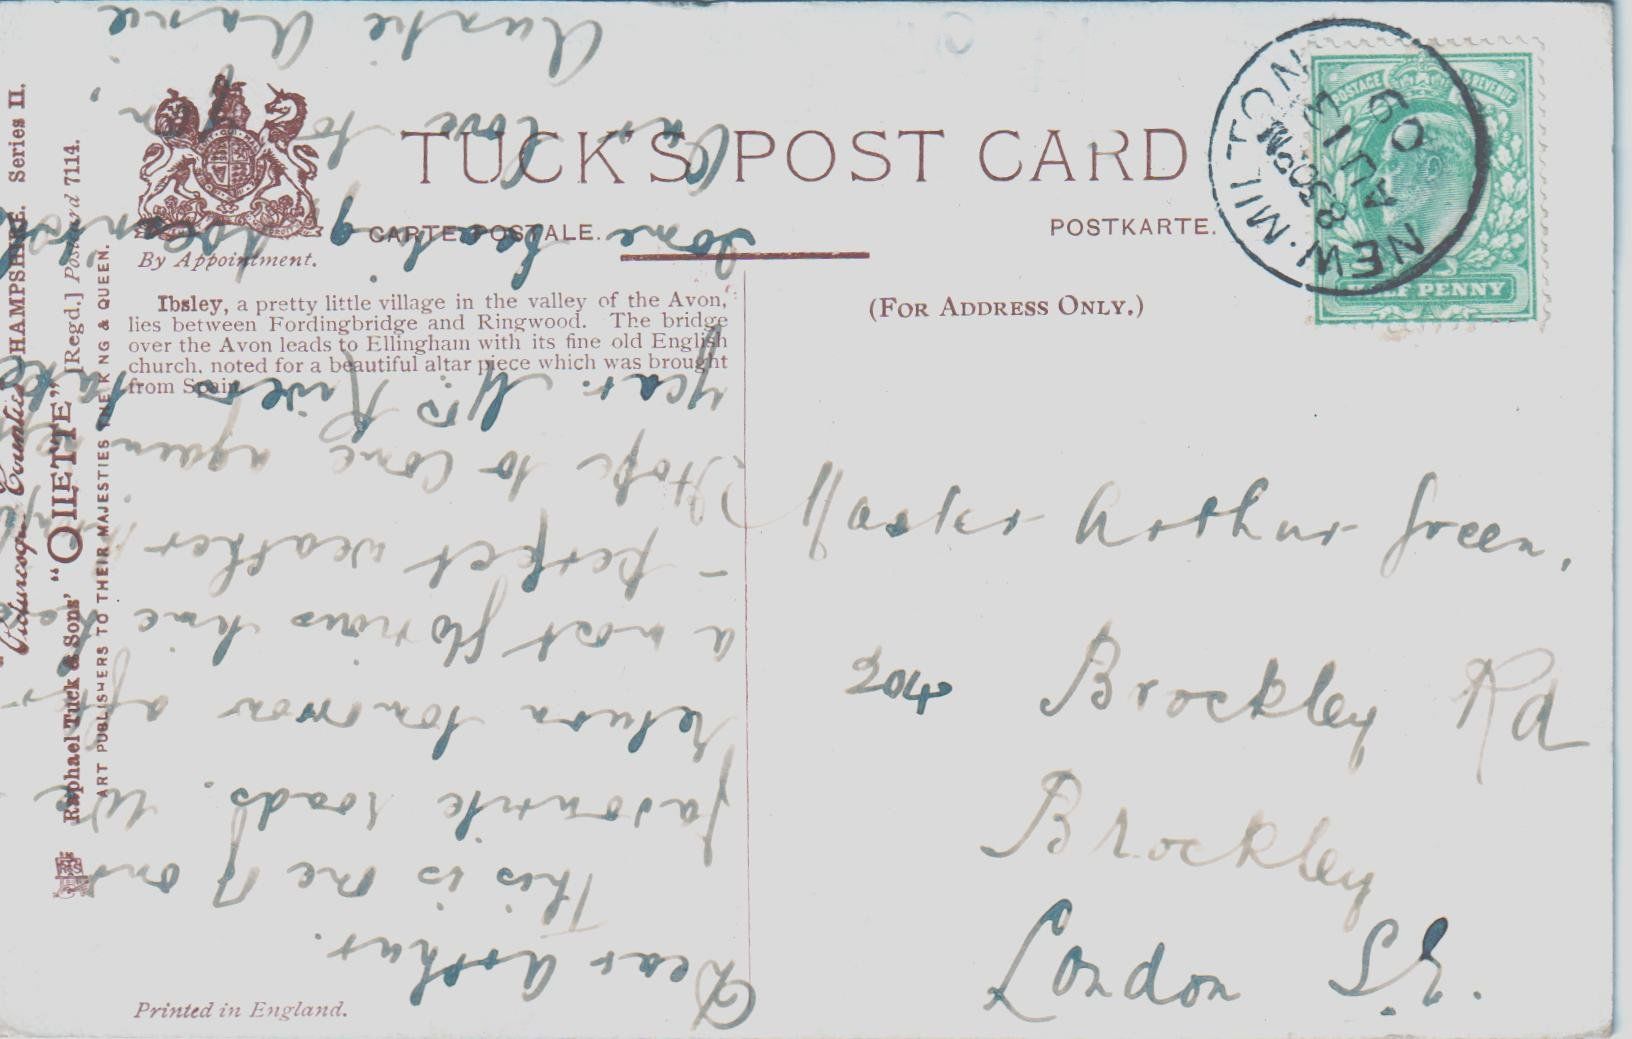 TUCK'S POST CARD
CARTE POSTALE.
POSTKARTE.
By Appointment.
(FOR ADDRESS ONLY.)
Ibsley, a pretty little village in the valley of the Avon,
lies between Fordingbridge and Ringwood. The bridge
over the Avon leads to Ellingham with its fine old English
church, noted for a beautiful altar piece which was brought
from Spain.
Printed in England.
HAMPSHIRE. Series II.
Raphael Tuck & Sons' "OILETTE" [Regd.] Postcard 7114.
ART PUBLISHERS TO THEIR MAJESTIES THE KING & QUEEN.
POSTAGE & REVENUE
HALF PENNY
NEW MILTON
8 30 PM
AU 13
09
Master Arthur Green,
204 Brockley Rd
Brockley
London S.E.
Dear Arthur.
This is one of our
favourite roads. We
return tomorrow after
a most glorious time here
– perfect weather.
Hope to come again
year. Mrs Rivers takes
some bathing
love to you,
Auntie Annie